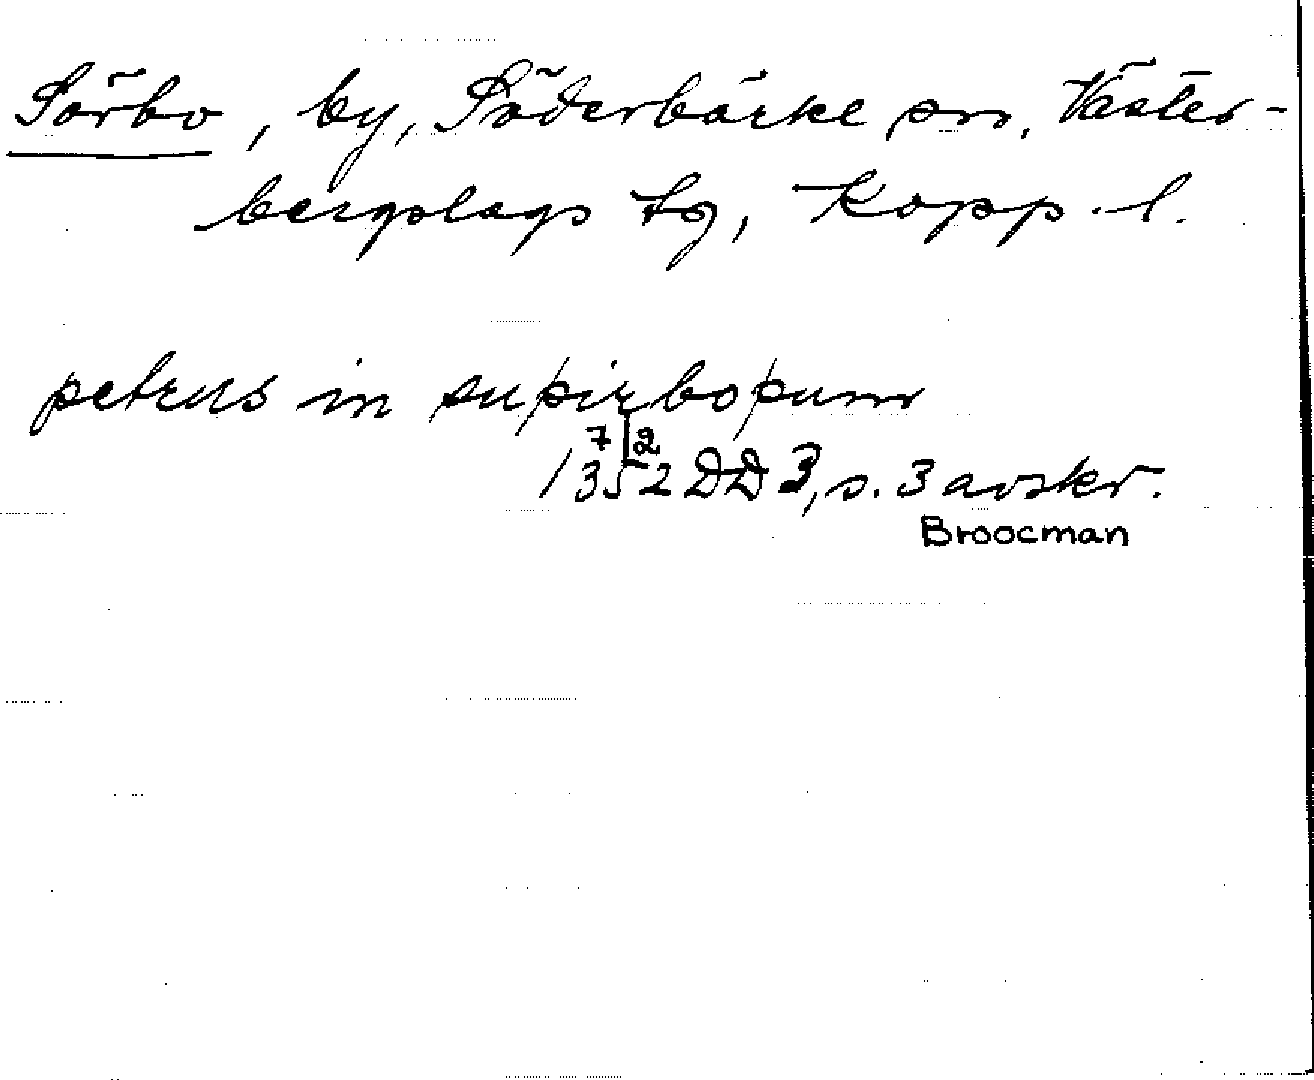 Sörbo, by, Söderbärke sn, Väster-
bergslags tg, Kopp. l.
petrus in supirbopum
7/2
1352 DD 3, s. 3 avskr.
Broocman